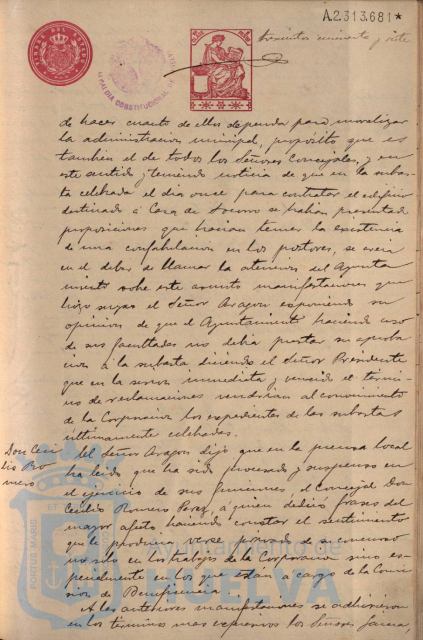 A.2.313.681*
trescientos cincuenta y siete
ALCALDIA CONSTITUCIONAL DE
de hacer cuanto de ellos dependa para moralizar
la administracion municipal, propósito que es
tambien el de todos los Señores Concejales, y en
este sentido y teniendo noticia de que en la subas-
ta celebrada el dia once para contratar el edificio
destinado á Casa de Socorro se habian presentado
proposiciones que hacian temer la existencia
de una confabulacion en los postores, se creia
en el deber de llamar la atencion del Ayunta
miento sobre este asunto manifestaciones que
hizo suyas el Señor Aragon exponiendo su
opinion de que el Ayuntamiento haciendo uso
de sus facultades no debia prestar su aproba
cion á la subasta diciendo el Señor Presidente
que en la sesion inmediata y vencido el térmi-
no de reclamaciones vendrian al conocimiento
de la Corporacion los expedientes de las subastas
últimamente celebradas.
Don Ceci
lio Ro
mero
El Señor Aragon dijo que en la prensa local
ha leido que ha sido procesado y suspenso en
el ejercicio de sus funciones, el Concejal Don
Cecilio Romero Perez, á quien dedicó frases del
mayor afecto, haciendo constar el sentimiento
que le producia verse privado de su concurso
no solo en los trabajos de la Corporacion sino es-
pecialmente en los que están á cargo de la Comi
sion de Beneficencia.
A las anteriores manifestaciones se adhirieron
en los términos mas expresivos los Señores Garcia
PORTUS MARIS ET
Ayuntamiento de
HUELVA